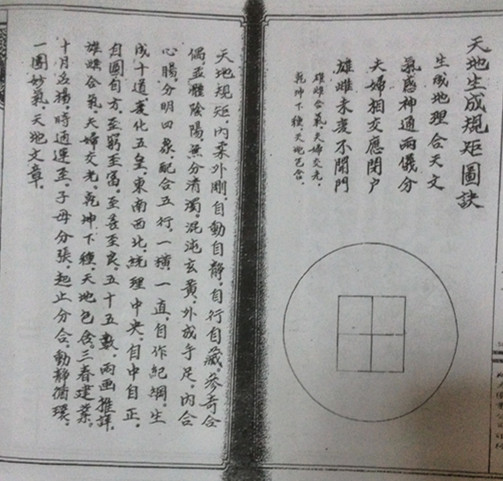 天地生成規矩圖訣
生成地理合天文
氣感神通兩儀分
夫婦相交應閉户
雄雌未度不開門
雄雌合氣，夫婦交光，
乾坤下種，天地包含。
天地規矩，內柔外剛，自動自静，自行自藏，參奇合
偶，孟體陰陽，無分清濁，混沌玄黃，外成手足，內合
心腸，分明四象，配合五行，一橫一直，自作紀綱，生
成十道，變化五皇，東南西北，統理中央，自中自正，
自圓自方，至窮至富，至善至良，五十五數，兩画推詳，
雄雌合氣，夫婦交光，乾坤下種，天地包含，三春建業，
十月返揚，時通運至，子母分張，起止分合，動静循環，
一團妙氣，天地文章。